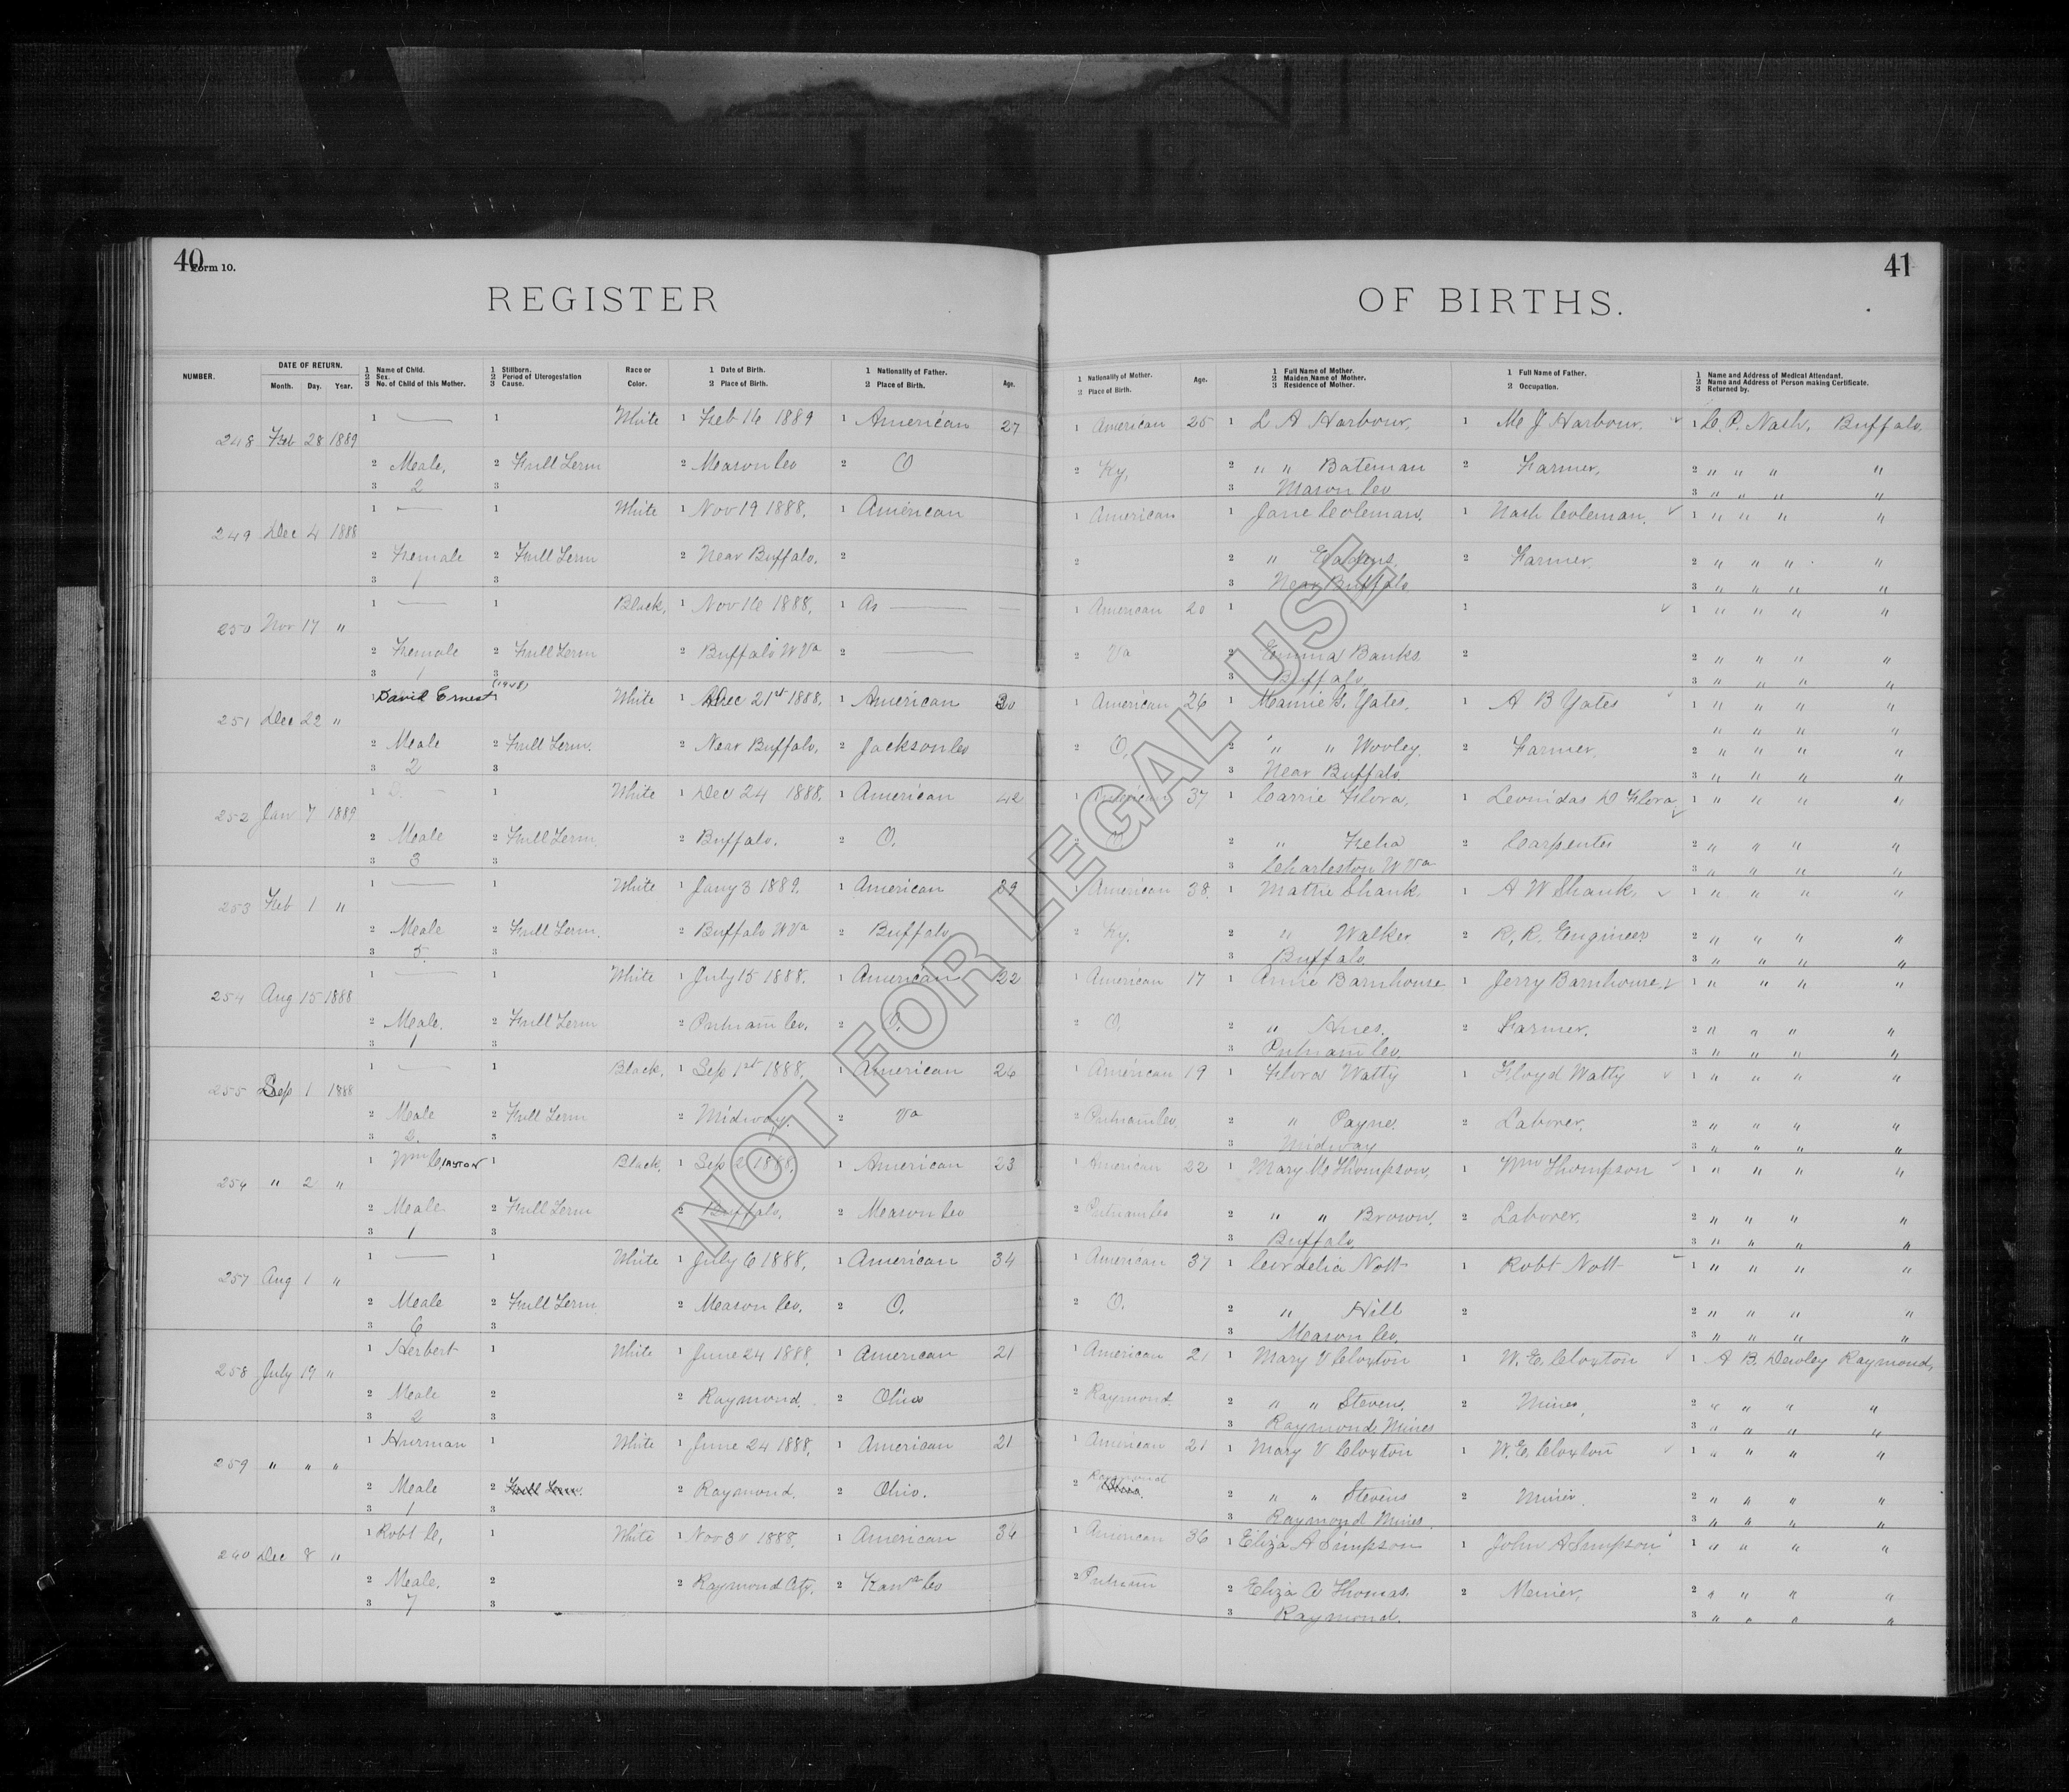 40
Form 10.
REGISTER
NUMBER. DATE OF RETURN. Month. Day. Year. 1 Name of Child. 2 Sex. 3 No. of Child of this Mother. 1 Stillborn. 2 Period of Uterogestation 3 Cause. Race or Color. 1 Date of Birth. 2 Place of Birth. 1 Nationality of Father. 2 Place of Birth. Age.
1 — 1 White 1 Feb 16 1889 1 American 27
248 Feb 28 1889
2 Male, 2 Full Term 2 Mason Co 2 O
3 2 3
1 — 1 White 1 Nov 19 1888. 1 American
249 Dec 4 1888
2 Female 2 Full Term 2 Near Buffalo. 2
3 1 3
1 — 1 Black, 1 Nov 16 1888, 1 As —
250 Nov 17 "
2 Female 2 Full Term 2 Buffalo W Va 2 —
3 1 3
1 David Ernest (1948) 1 White 1 Dec 21st 1888. 1 American 30
251 Dec 22 "
2 Male 2 Full Term. 2 Near Buffalo, 2 Jackson Co
3 2 3
1 — 1 White 1 Dec 24 1888, 1 American 42
252 Jan 7 1889
2 Male 2 Full Term. 2 Buffalo. 2 O.
3 3 3
1 — 1 White 1 Jany 3 1889. 1 American 39
253 Feb 1 "
2 Male 2 Full Term. 2 Buffalo W Va 2 Buffalo
3 5. 3
1 — 1 White 1 July 15 1888. 1 American 22
254 Aug 15 1888
2 Male. 2 Full Term 2 Putnam Co. 2 O.
3 1 3
1 — 1 Black, 1 Sep 1st 1888, 1 American 26
255 Sep 1 1888
2 Male 2 Full Term 2 Midway. 2 Va
3 2. 3
1 Wm Clayton 1 Black, 1 Sep 2 1888, 1 American 23
256 " 2 "
2 Male 2 Full Term 2 Buffalo, 2 Mason Co
3 1 3
1 — 1 White 1 July 6 1888, 1 American 34
257 Aug 1 "
2 Male 2 Full Term 2 Mason Co. 2 O.
3 6 3
1 Herbert 1 White 1 June 24 1888, 1 American 21
258 July 19 "
2 Male 2 2 Raymond. 2 Ohio
3 2 3
1 Hurman 1 White 1 June 24 1888, 1 American 21
259 " " "
2 Male 2 Full Term 2 Raymond. 2 Ohio.
3 1 3
1 Robt C, 1 White 1 Nov 30 1888, 1 American 36
260 Dec 8 "
2 Male. 2 2 Raymond City, 2 Kana Co
3 7 3
41
OF BIRTHS.
1 Nationality of Mother. 2 Place of Birth. Age. 1 Full Name of Mother. 2 Maiden Name of Mother. 3 Residence of Mother. 1 Full Name of Father. 2 Occupation. 1 Name and Address of Medical Attendant. 2 Name and Address of Person making Certificate. 3 Returned by.
1 American 25 1 L A Harbour, 1 M J Harbour. 1 C. P. Nash, Buffalo.
2 Ky, 2 " " Bateman 2 Farmer, 2 " " " "
3 Mason Co 3 " " " "
1 American 1 Jane Coleman. 1 Nash Coleman. 1 " " " "
2 2 " 2 Farmer. 2 " " " "
3 Near Buffalo 3 " " " "
1 American 20 1 1 1 " " " "
2 Va 2 Emma Banks 2 2 " " " "
3 Buffalo 3 " " " "
1 American 26 1 Mamie G. Yates, 1 A B Yates 1 " " " "
" " " "
2 O, 2 " " Wooley. 2 Farmer 2 " " " "
3 Near Buffalo 3 " " " "
1 American 37 1 Carrie Flora, 1 Leonidas D Flora 1 " " " "
2 O 2 " 2 Carpenter 2 " " " "
3 Charleston W Va 3 " " " "
1 American 38. 1 Mattie Shank, 1 A W Shank, 1 " " " "
2 Ky. 2 " Walker 2 R. R. Engineer 2 " " " "
3 Buffalo 3 " " " "
1 American 17 1 Annie Barnhouse 1 Jerry Barnhouse, 1 " " " "
2 O, 2 " Hues. 2 Farmer. 2 " " " "
3 Putnam Co. 3 " " " "
1 American 19 1 Flora Watty 1 Floyd Watty 1 " " " "
2 Putnam Co. 2 " Payne. 2 Laborer. 2 " " " "
3 Midway 3 " " " "
1 American 22 1 Mary M Thompson, 1 Wm Thompson 1 " " " "
2 Putnam Co 2 " " Brown. 2 Laborer. 2 " " " "
3 Buffalo. 3 " " " "
1 American 37 1 Cordelia Nott 1 Robt Nott 1 " " " "
2 O. 2 " Hill 2 2 " " " "
3 Mason Co. 3 " " " "
1 American 21 1 Mary V Cloxton 1 W. E. Cloxton 1 A B. Dewley Raymond,
2 Raymond. 2 " " Stevens. 2 Miner, 2 " " " "
3 Raymond Mines 3 " " " "
1 American 21 1 Mary V Cloxton 1 W. E. Cloxton 1 " " " "
Raymond
2 Ohio. 2 " " Stevens 2 Miner. 2 " " " "
3 Raymond Mines. 3 " " " "
1 American 36 1 Eliza A Simpson 1 John A Simpson 1 " " " "
2 Putnam 2 Eliza A Thomas. 2 Meiner, 2 " " " "
3 Raymond. 3 " " " "
NOT FOR LEGAL USE